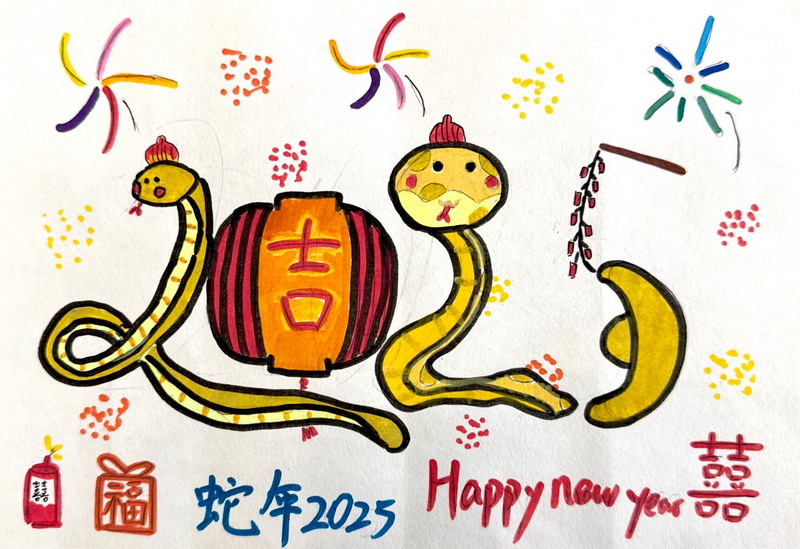 吉
囍
福
蛇年2025
Happy new year
囍